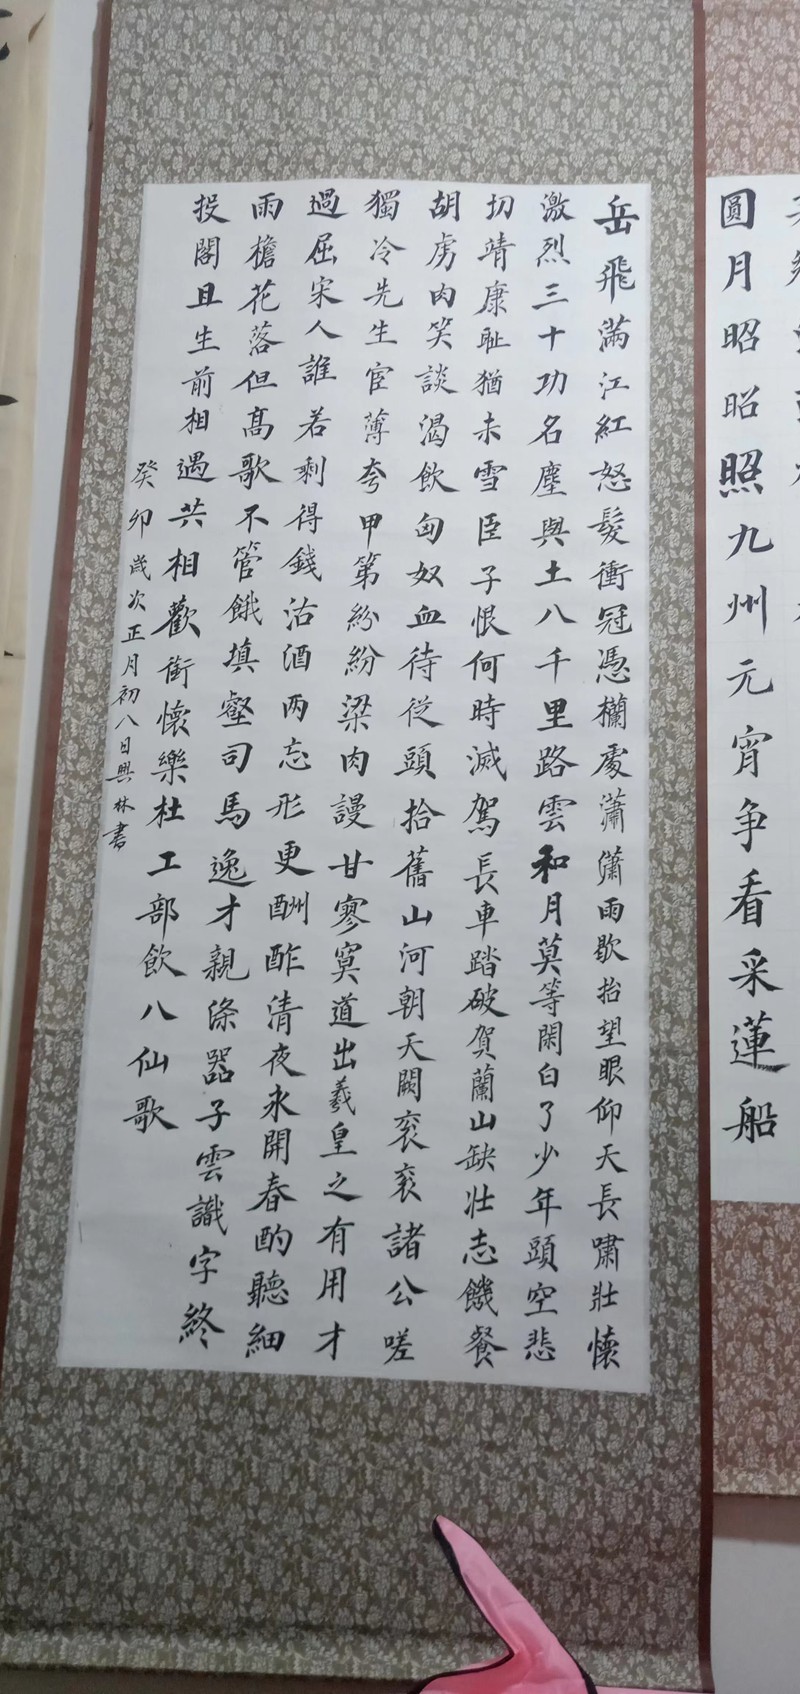 圓月昭昭照九州元宵争看采蓮船
岳飛滿江紅怒髮衝冠憑欄處瀟瀟雨歇抬望眼仰天長嘯壯懷
激烈三十功名塵與土八千里路雲和月莫等閑白了少年頭空悲
切靖康耻猶未雪臣子恨何時滅駕長車踏破賀蘭山缺壯志饑餐
胡虜肉笑談渴飲匈奴血待從頭拾舊山河朝天闕衮衮諸公嗟
獨冷先生官薄夸甲第紛紛梁肉謾甘寥寞道出羲皇之有用才
過屈宋人誰若剩得錢沽酒两忘形更酬酢清夜永開春酌聽細
雨檐花落但高歌不管餓填壑司馬逸才親滌器子雲識字終
投閣且生前相遇共相歡銜懷樂杜工部飲八仙歌
癸卯歲次正月初八日興林書